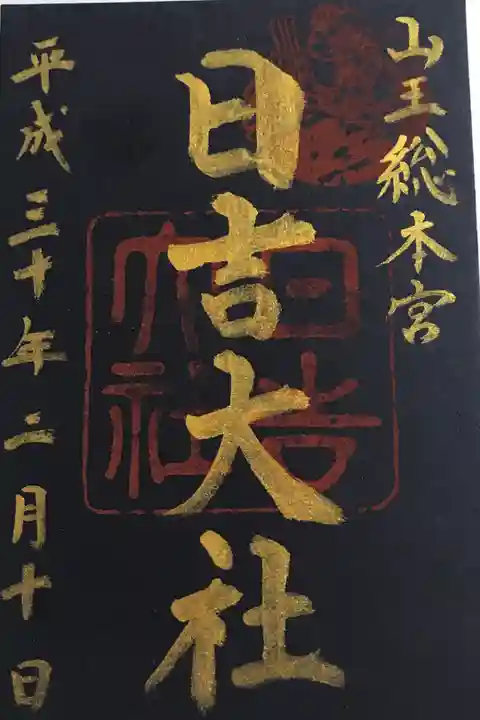 山王総本宮
日吉大社
日吉
大社
平成三十年二月十日